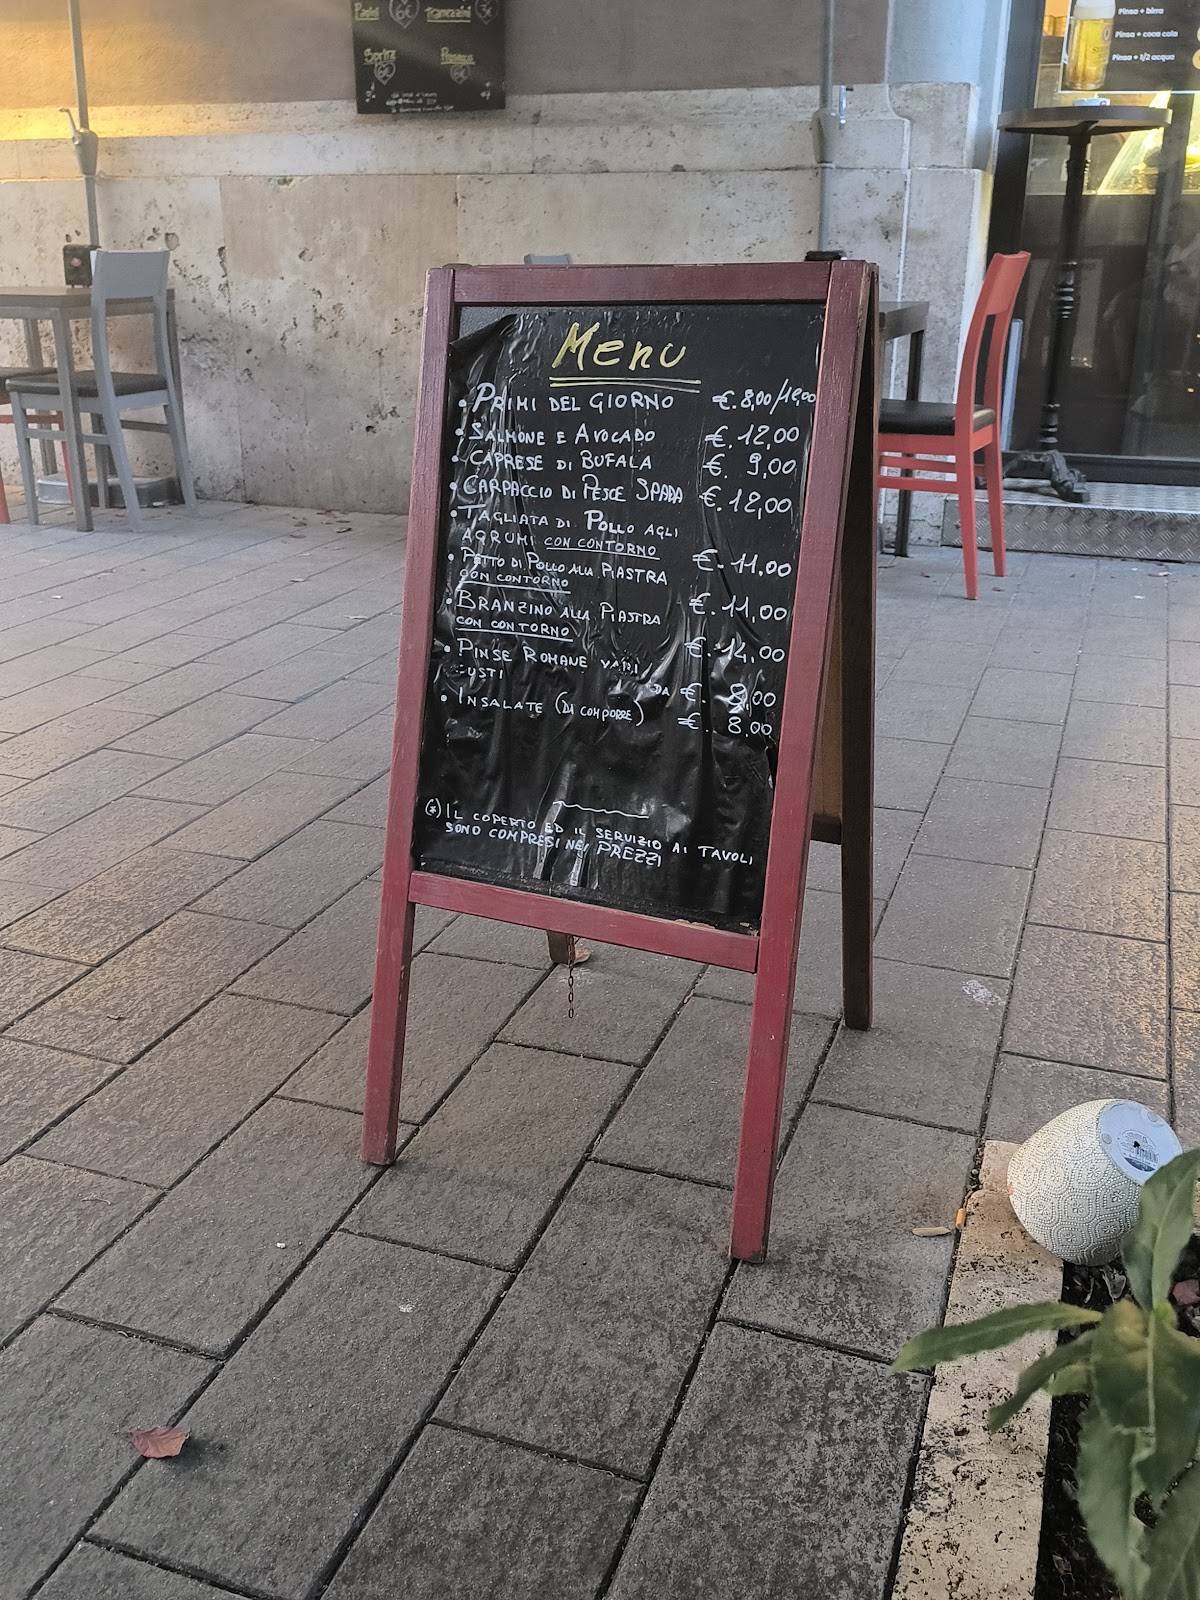 Panini 6€ Tramezzini 3€
Spritz 6€ Prosecco 6€
Pinsa + birra
Pinsa + coca cola
Pinsa + 1/2 acqua
Menu
• PRIMI DEL GIORNO €. 8,00/10,00
• SALMONE E AVOCADO €. 12,00
• CAPRESE DI BUFALA €. 9,00
• CARPACCIO DI PESCE SPADA €. 12,00
• TAGLIATA DI POLLO AGLI
AGRUMI CON CONTORNO €. 11,00
• PETTO DI POLLO ALLA PIASTRA
CON CONTORNO €. 11,00
• BRANZINO ALLA PIASTRA
CON CONTORNO €. 14,00
• PINSE ROMANE VARI
GUSTI DA €. 8,00
• INSALATE (DA COMPORRE) €. 8,00
(*) IL COPERTO ED IL SERVIZIO AI TAVOLI
SONO COMPRESI NEI PREZZI